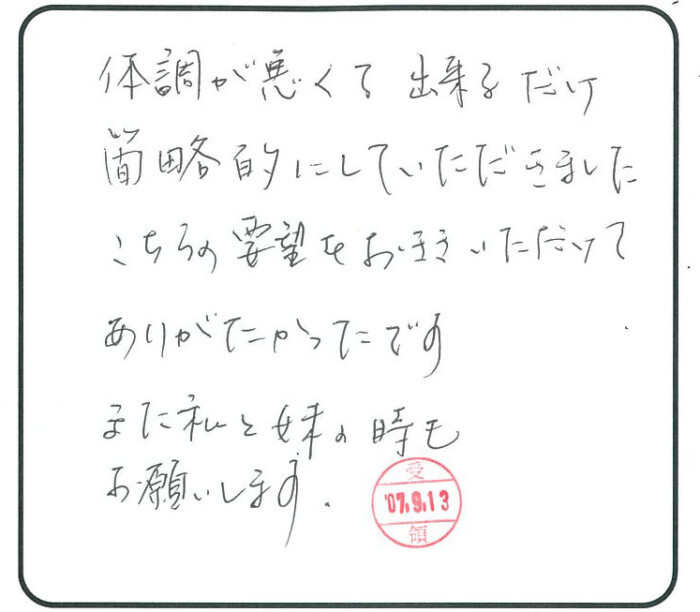 体調が悪くて 出来るだけ
簡略的にしていただきました
こちらの要望をお聞きいただけて
ありがたかったです
また私と妹の時も
お願いします.
受
'07.9.13
領